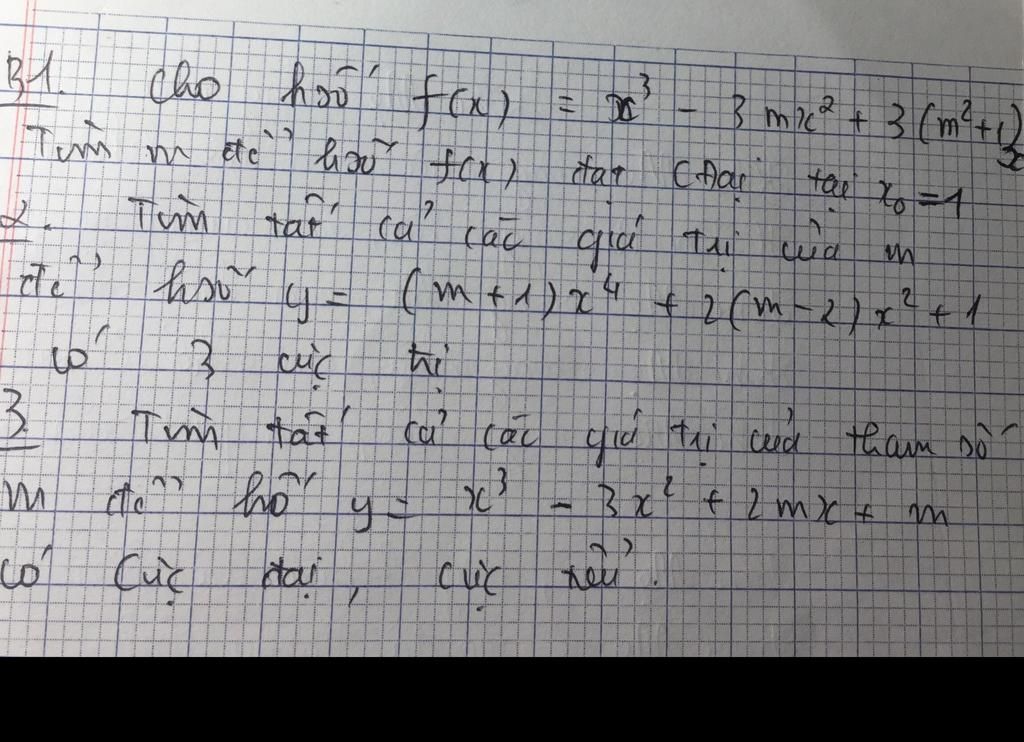 B1. Cho hsố f(x) = x³ - 3mx² + 3(m²+1)x
Tìm m để hsố f(x) đạt CĐại tại x₀=1
2. Tìm tất cả các giá trị của m
để hsố y = (m+1)x⁴ + 2(m-2)x² + 1
có 3 cực trị
3 Tìm tất cả các giá trị của tham số
m để hố y = x³ - 3x² + 2mx + m
có Cực đại, cực tiểu.